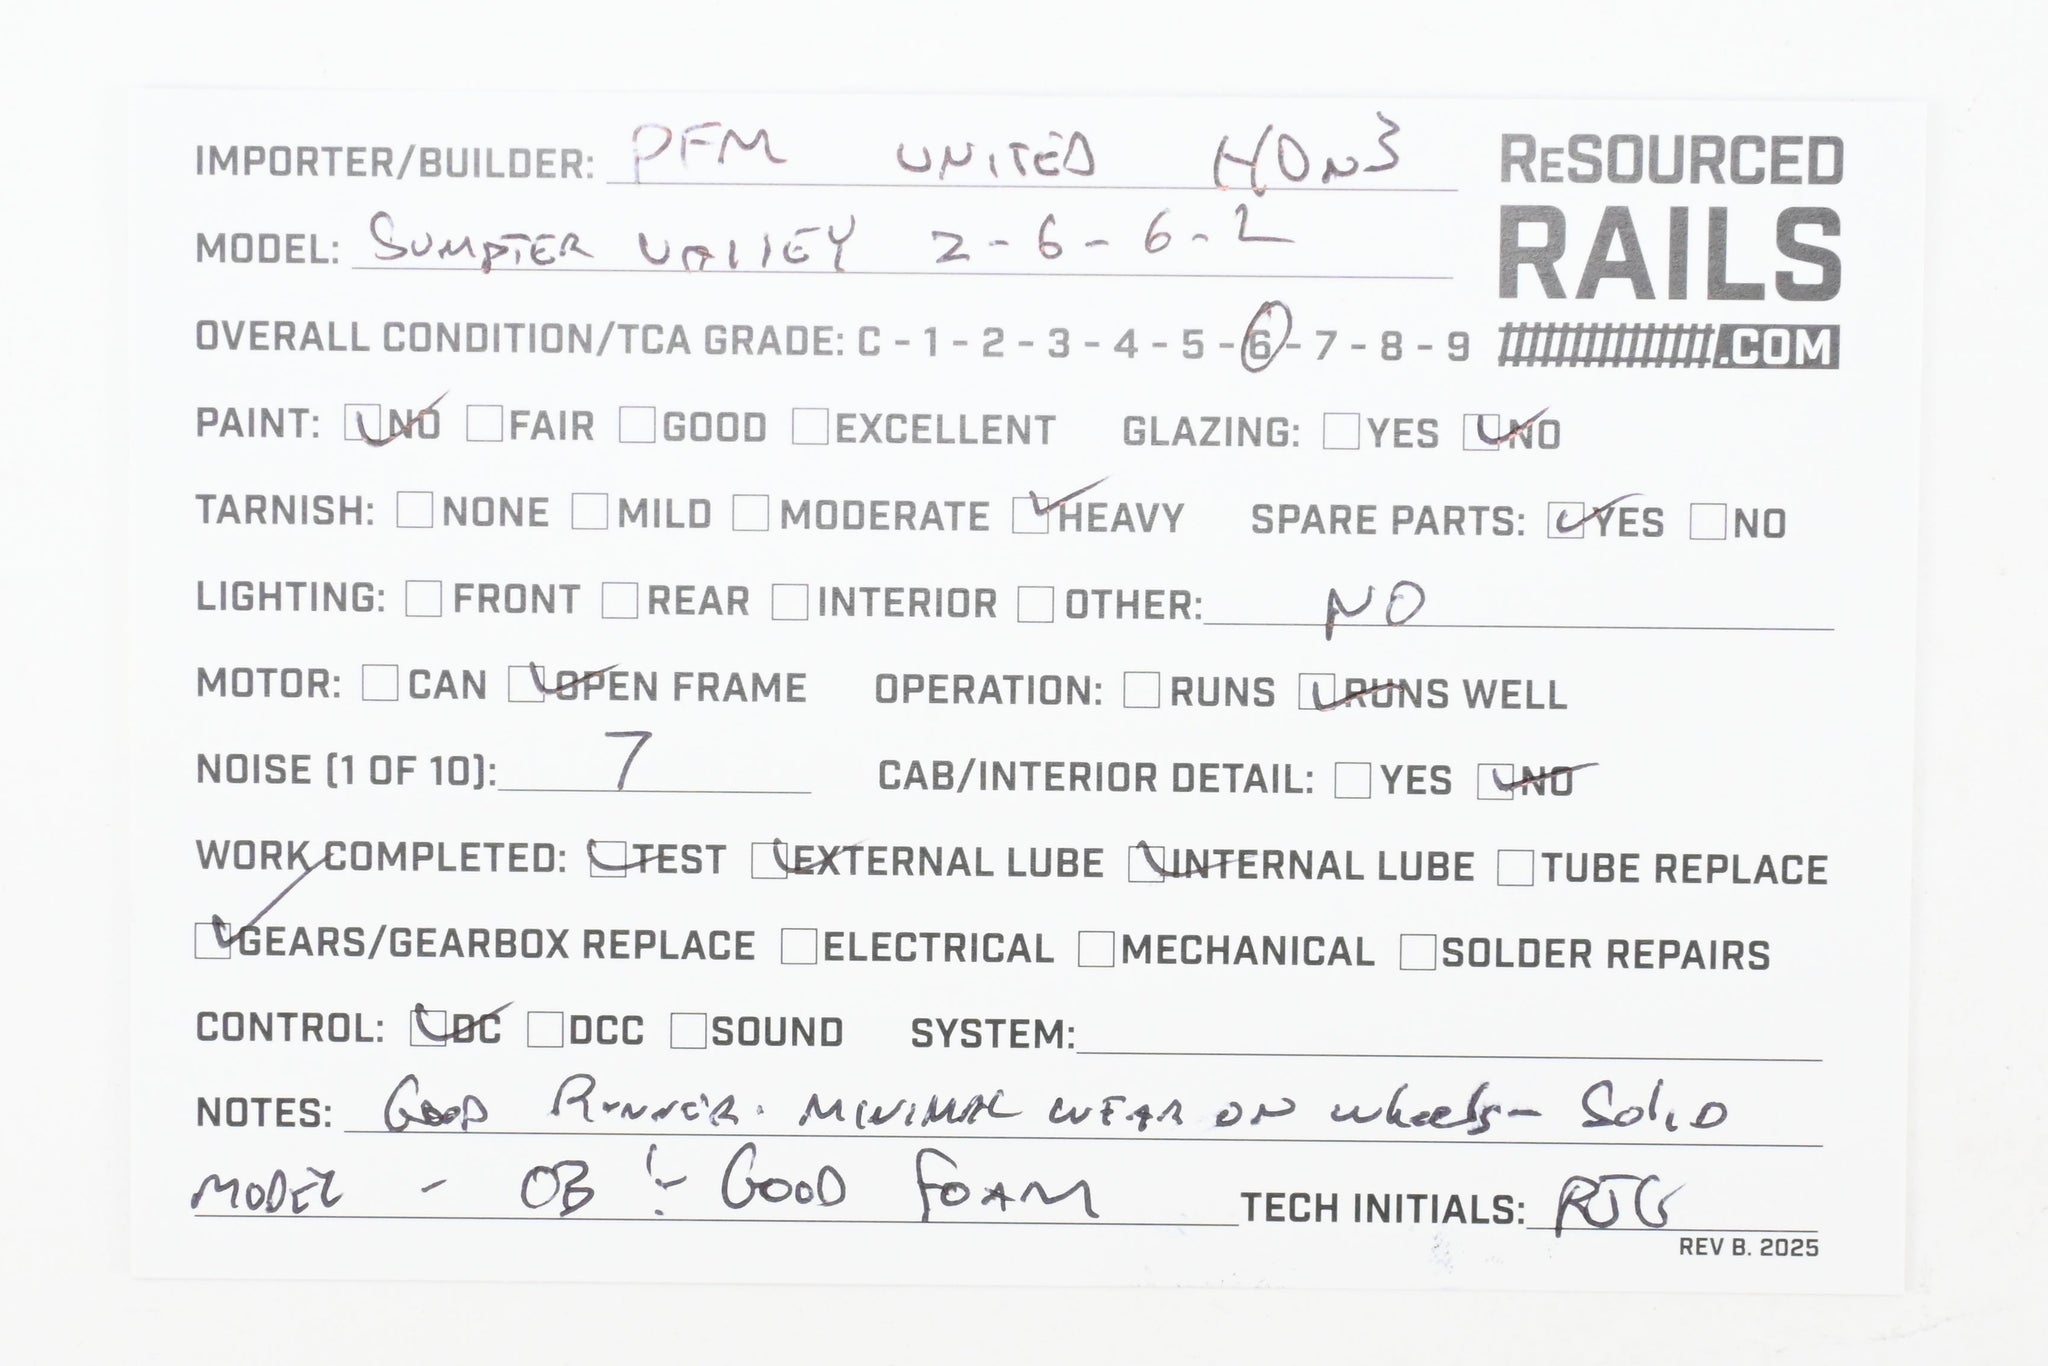 IMPORTER/BUILDER: PFM UNITED HOn3
ReSOURCED
RAILS
.COM
MODEL: SUMPTER VALLEY 2-6-6-2
OVERALL CONDITION/TCA GRADE: C - 1 - 2 - 3 - 4 - 5 - 6 - 7 - 8 - 9
PAINT: NO FAIR GOOD EXCELLENT GLAZING: YES NO
TARNISH: NONE MILD MODERATE HEAVY SPARE PARTS: YES NO
LIGHTING: FRONT REAR INTERIOR OTHER: NO
MOTOR: CAN OPEN FRAME OPERATION: RUNS RUNS WELL
NOISE (1 OF 10): 7 CAB/INTERIOR DETAIL: YES NO
WORK COMPLETED: TEST EXTERNAL LUBE INTERNAL LUBE TUBE REPLACE
GEARS/GEARBOX REPLACE ELECTRICAL MECHANICAL SOLDER REPAIRS
CONTROL: DC DCC SOUND SYSTEM:
NOTES: GOOD RUNNER. MINIMAL WEAR ON wheels - SOLID
MODEL - OB & GOOD FOAM TECH INITIALS: RJG
REV B. 2025